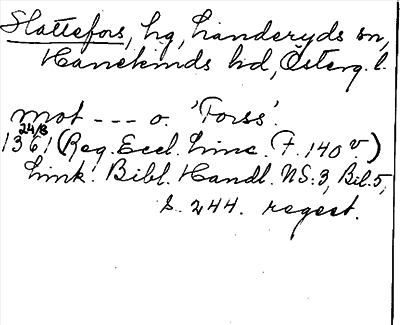 Slattefors, hg, Landeryds sn,
Hanekinds hd, Österg. l.
mot --- o. 'Forss'.
24/8
1361 (Reg. Eccl. Linc. F. 140 v.)
Link. Bibl. Handl. NS: 3, Bil. 5,
s. 244. regest.